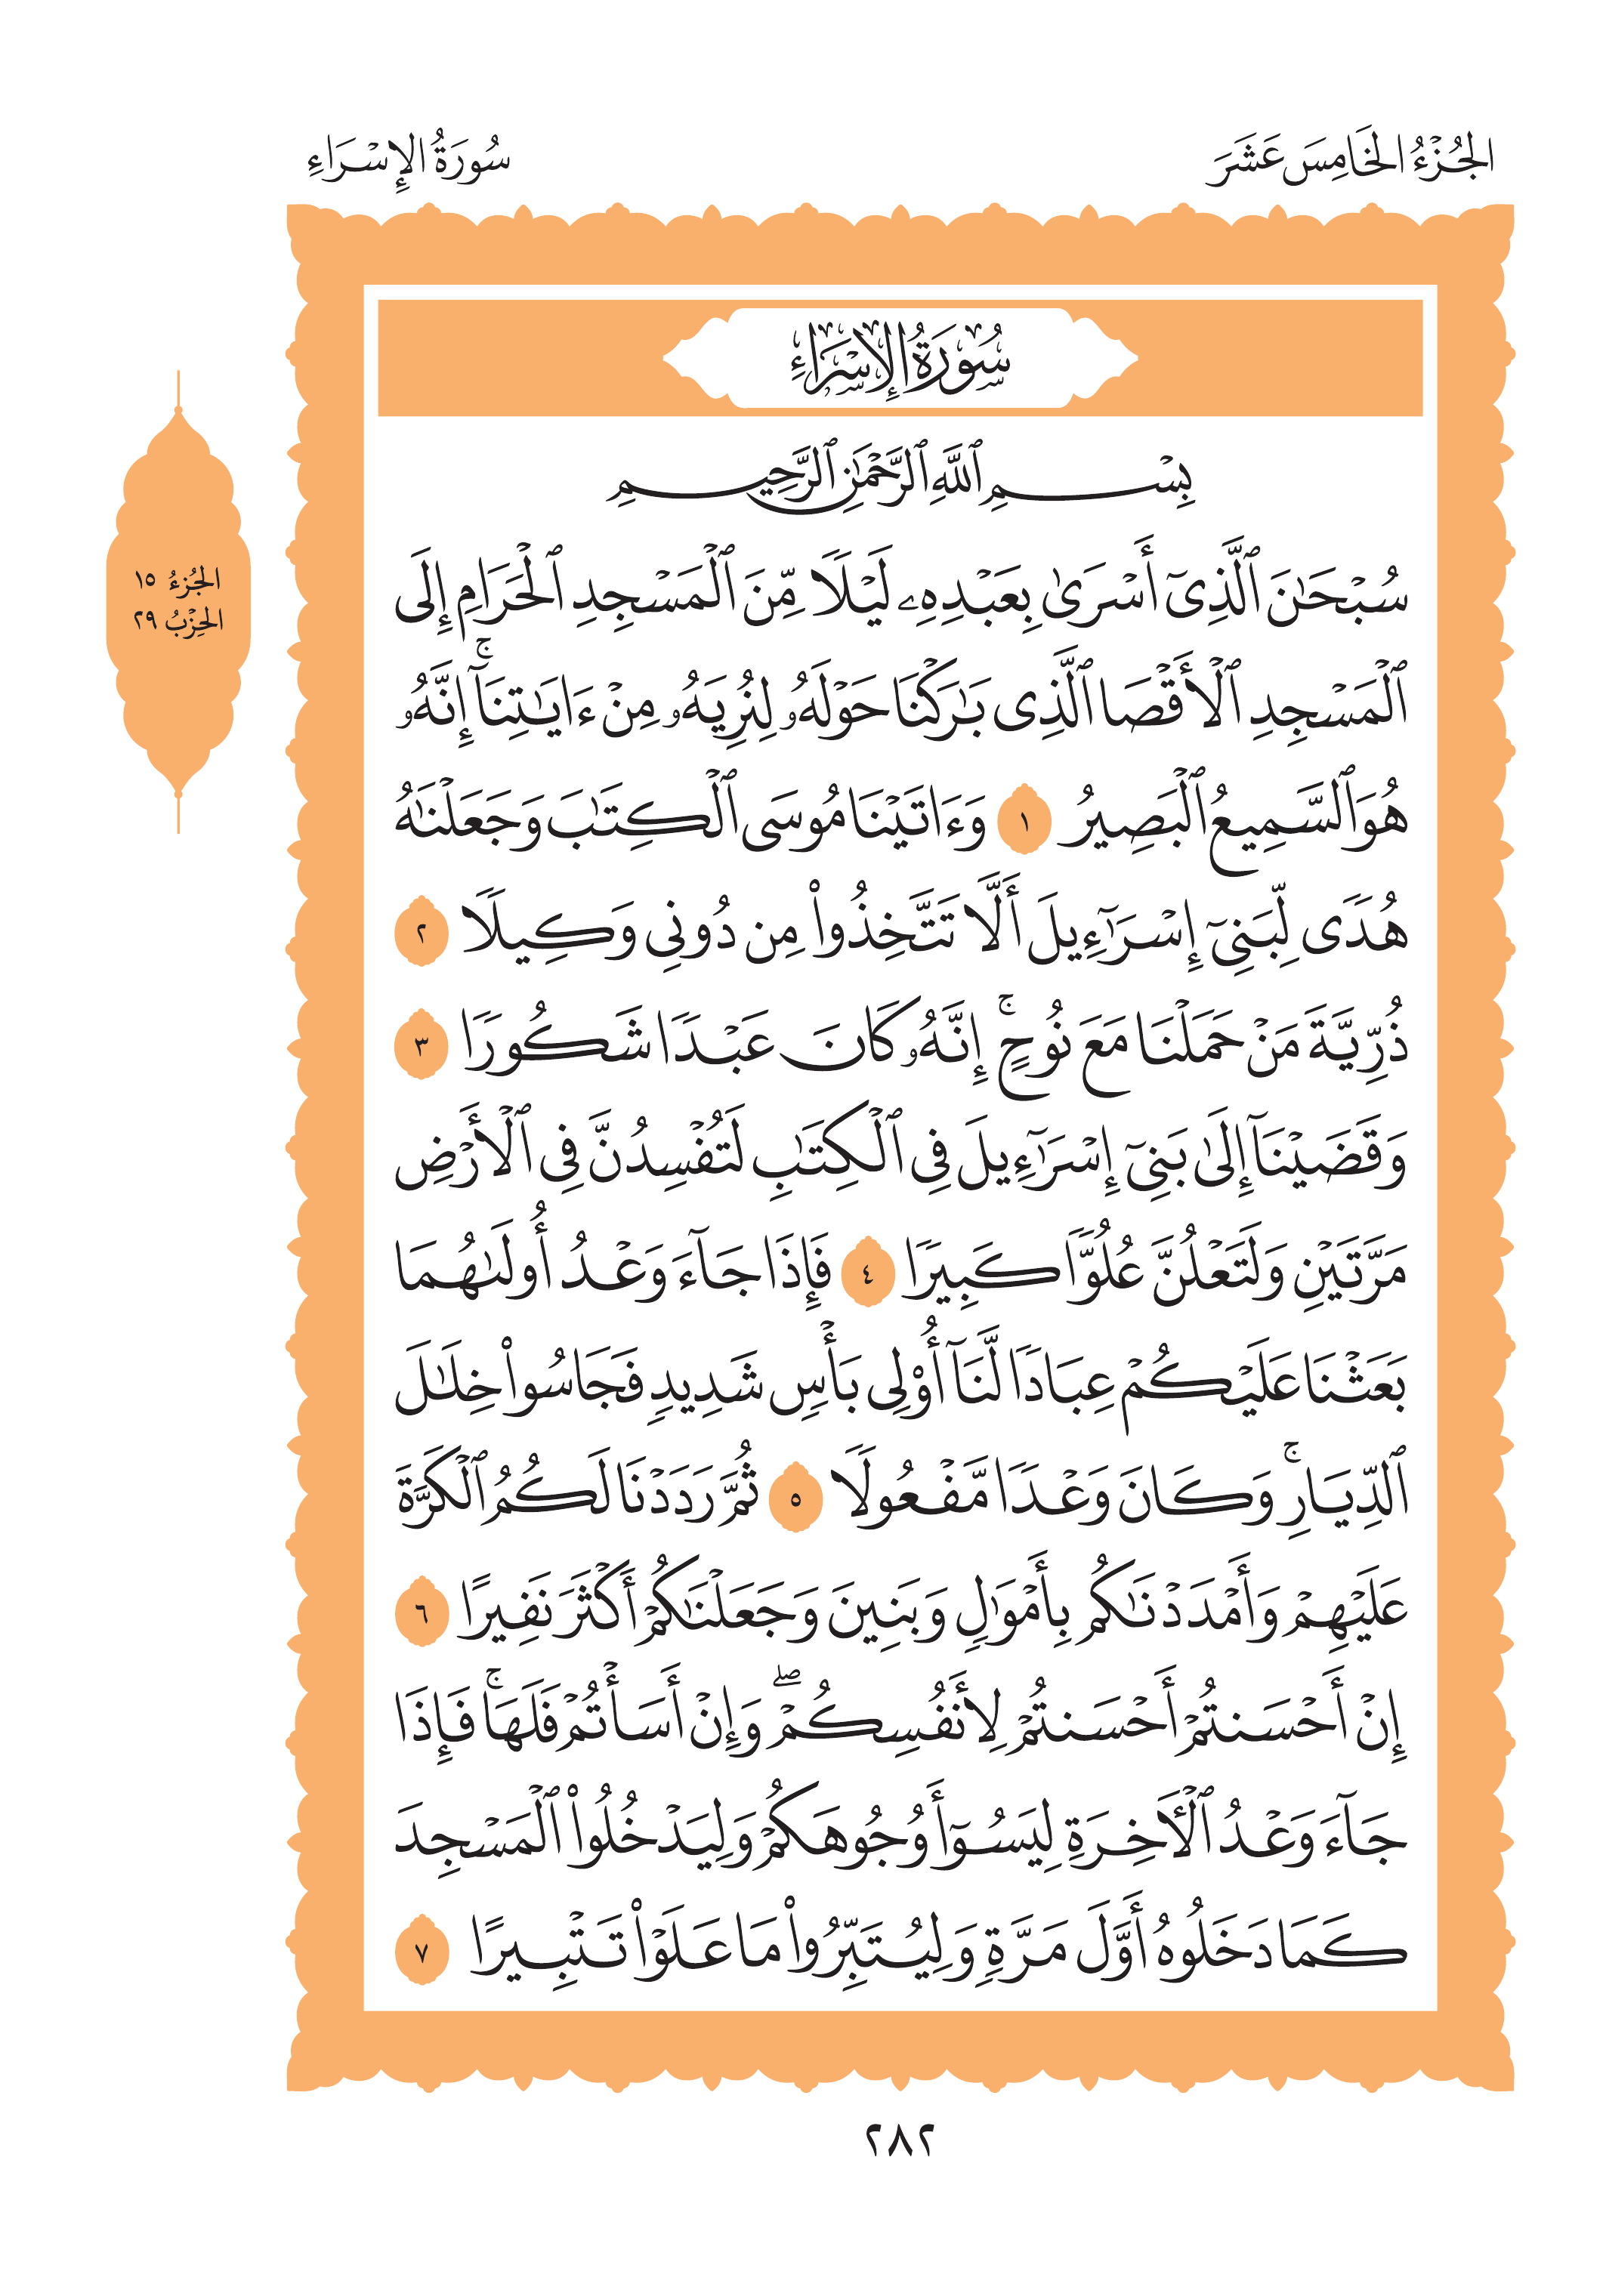 الجُزْءُ الخَامِسَ عَشَرَ
سُورَةُ الإِسْرَاءِ
سُورَةُ الإِسْرَاءِ
بِسْمِ ٱللَّهِ ٱلرَّحْمَٰنِ ٱلرَّحِيمِ
سُبْحَٰنَ ٱلَّذِىٓ أَسْرَىٰ بِعَبْدِهِۦ لَيْلًا مِّنَ ٱلْمَسْجِدِ ٱلْحَرَامِ إِلَى
ٱلْمَسْجِدِ ٱلْأَقْصَا ٱلَّذِى بَٰرَكْنَا حَوْلَهُۥ لِنُرِيَهُۥ مِنْ ءَايَٰتِنَآ ۚ إِنَّهُۥ
هُوَ ٱلسَّمِيعُ ٱلْبَصِيرُ ١ وَءَاتَيْنَا مُوسَى ٱلْكِتَٰبَ وَجَعَلْنَٰهُ
هُدًى لِّبَنِىٓ إِسْرَٰٓءِيلَ أَلَّا تَتَّخِذُوا۟ مِن دُونِى وَكِيلًا ٢
ذُرِّيَّةَ مَنْ حَمَلْنَا مَعَ نُوحٍ ۚ إِنَّهُۥ كَانَ عَبْدًا شَكُورًا ٣
وَقَضَيْنَآ إِلَىٰ بَنِىٓ إِسْرَٰٓءِيلَ فِى ٱلْكِتَٰبِ لَتُفْسِدُنَّ فِى ٱلْأَرْضِ
مَرَّتَيْنِ وَلَتَعْلُنَّ عُلُوًّا كَبِيرًا ٤ فَإِذَا جَآءَ وَعْدُ أُولَىٰهُمَا
بَعَثْنَا عَلَيْكُمْ عِبَادًا لَّنَآ أُو۟لِى بَأْسٍ شَدِيدٍ فَجَاسُوا۟ خِلَٰلَ
ٱلدِّيَارِ ۚ وَكَانَ وَعْدًا مَّفْعُولًا ٥ ثُمَّ رَدَدْنَا لَكُمُ ٱلْكَرَّةَ
عَلَيْهِمْ وَأَمْدَدْنَٰكُم بِأَمْوَٰلٍ وَبَنِينَ وَجَعَلْنَٰكُمْ أَكْثَرَ نَفِيرًا ٦
إِنْ أَحْسَنتُمْ أَحْسَنتُمْ لِأَنفُسِكُمْ ۖ وَإِنْ أَسَأْتُمْ فَلَهَا ۚ فَإِذَا
جَآءَ وَعْدُ ٱلْـَٔاخِرَةِ لِيَسُـۥٓـُٔوا۟ وُجُوهَكُمْ وَلِيَدْخُلُوا۟ ٱلْمَسْجِدَ
كَمَا دَخَلُوهُ أَوَّلَ مَرَّةٍ وَلِيُتَبِّرُوا۟ مَا عَلَوْا۟ تَتْبِيرًا ٧
الجُزءُ ١٥
الحِزْبُ ٢٩
٢٨٢